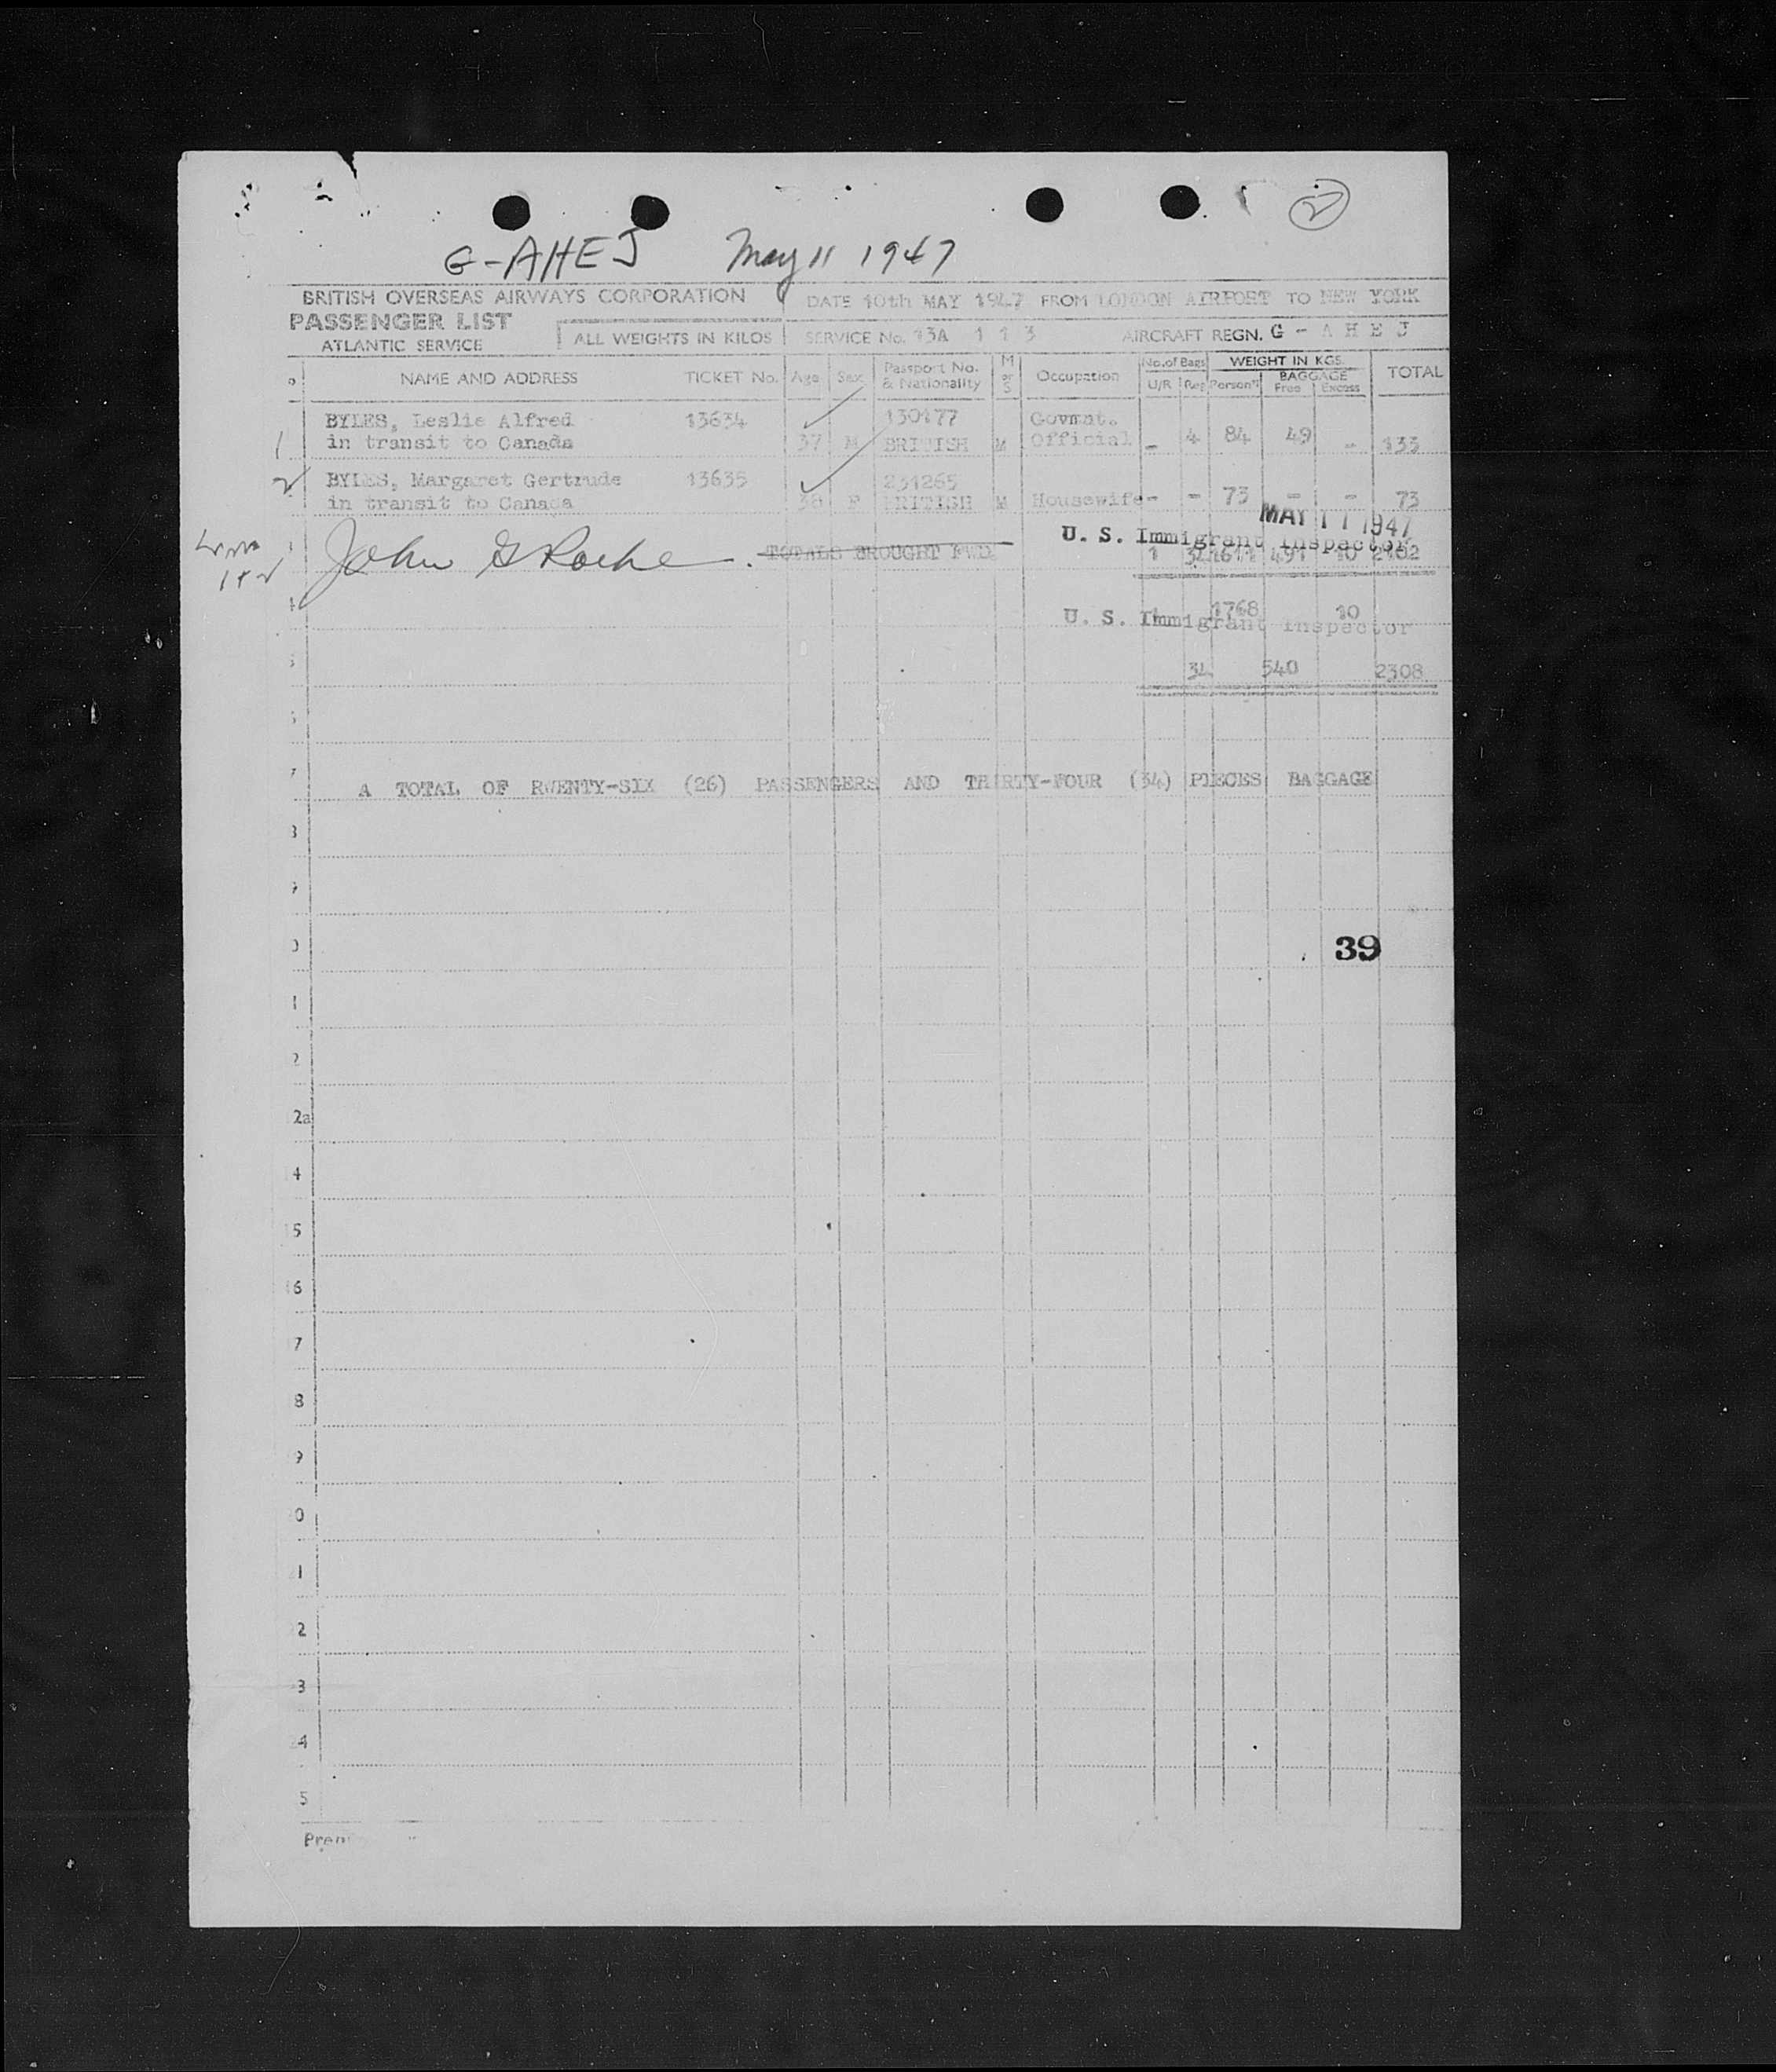 2
G-AHEJ May 11 1947
BRITISH OVERSEAS AIRWAYS CORPORATION DATE 10th MAY 1947 FROM LONDON AIRPORT TO NEW YORK
PASSENGER LIST
ATLANTIC SERVICE ALL WEIGHTS IN KILOS SERVICE No. 13A 1 1 3 AIRCRAFT REGN. G - A H E J
NAME AND ADDRESS TICKET No. Age Sex Passport No. & Nationality M or S Occupation No. of Bags U/R Reg WEIGHT IN KGS. Person'l BAGGAGE Free Excess TOTAL
BYLES, Leslie Alfred 13634 130177 Govmnt.
1 in transit to Canada 37 M BRITISH M Official - 4 84 49 - 133
2 BYLES, Margaret Gertrude 13635 231265
in transit to Canada 38 F BRITISH M Housewife - - 73 - - 73
MAY 11 1947
U. S. Immigrant Inspector
John G Roche. TOTALS BROUGHT FWD 1 34 1611 491 10 2102
1+2
4 1768 10
U. S. Immigrant Inspector
34 540 2308
7 A TOTAL OF RWENTY-SIX (26) PASSENGERS AND THIRTY-FOUR (34) PIECES BAGGAGE
39
2
2a
4
5
6
7
8
9
0
1
2
3
4
5